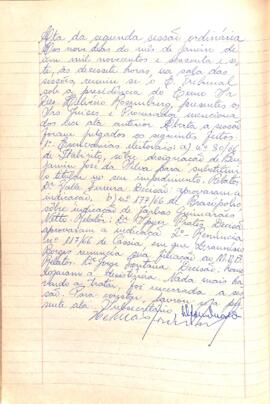 Ata da segunda sessão ordinária
Aos nove dias do mês de janeiro de
um mil novecentos e sessenta e se-
te, às dezessete horas, na sala das
sessões, reuniu-se o E. Tribunal
sob a presidência do Exmo Sr
Des. presentes os
Srs Juízes e Procurador menciona-
dos na ata anterior. Aberta a sessão
foram julgados os seguintes feitos
1º Escrivanias eleitorais: a) nº 80/66
de sobre designação de Ben-
jamim José da para substituir
o titular no seu impedimento. Relator:
Dr Valle Ferreira Decisão: aprovaram a
indicação. b) nº 177/66 de Brasópolis
sobre indicação de Guimarães
Netto. Relator: Dr Prates. Decisão:
aprovaram a indicação 2º Renúncia
nº 117/66 de Cássia, em que
Borges renuncia sua filiação ao M.D.B.
Relator: Dr Jorge Fontana Decisão: homo-
logaram a desistência. Nada mais ha-
vendo a tratar, foi encerrada a ses-
são. Para constar, lavrou-se a pre-
sente ata.